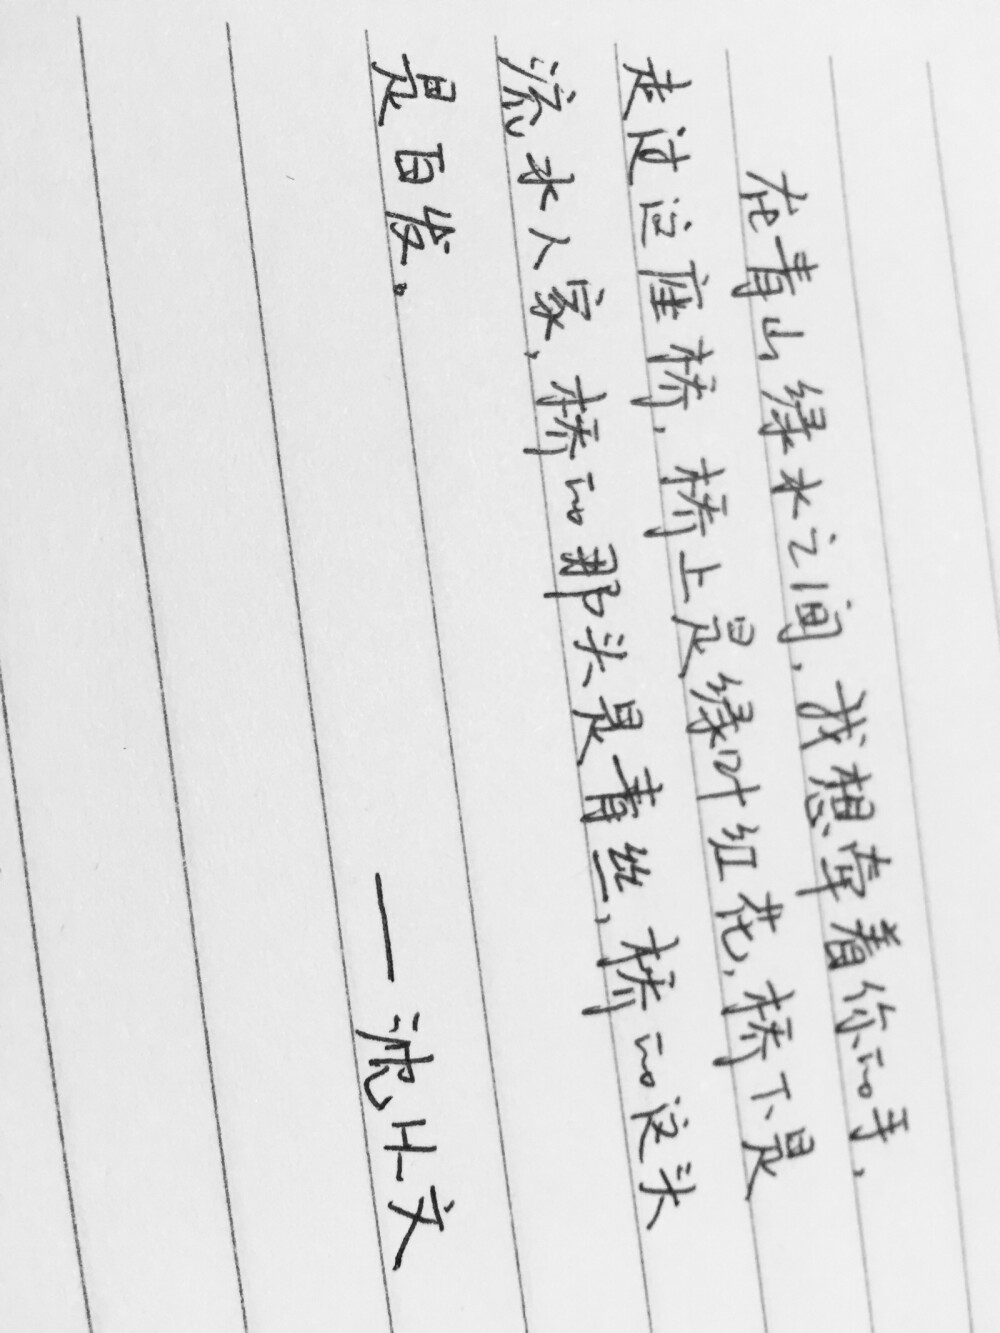 在青山绿水之间，我想牵着你的手，
走过这座桥，桥上是绿叶红花，桥下是
流水人家，桥的那头是青丝，桥的这头
是白发。
——沈从文